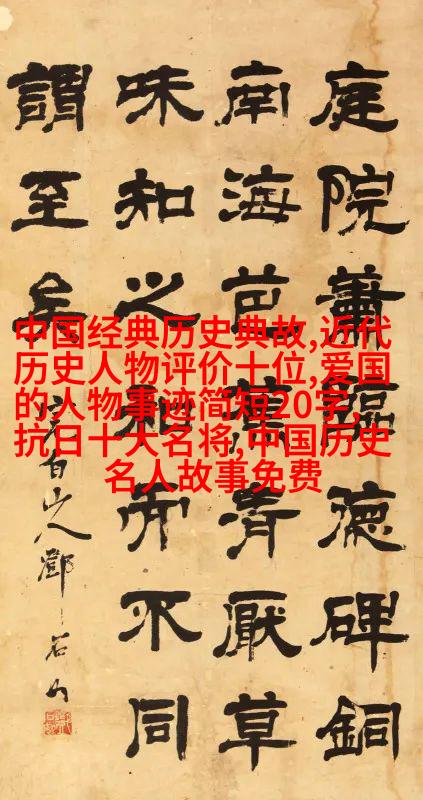 庭院蕭臨德碑銅
南海芭清厭草
味知之和而不同
謂至矣
完白山人鄧石如
中国经典历史典故,近代
历史人物评价十位,爱国
的人物事迹简短20字,
抗日十大名将,中国历史
名人故事免费